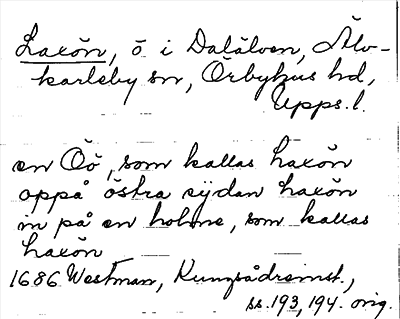 Laxön, ö i Dalälven, Älv-
karleby sn, Örbyhus hd,
Upps.l.
en Öö, som kallas Laxön
oppå östra sijdan Laxön
in på en holme, som kallas
Laxön
1686 Westman, Kungsådreinst.,
ss. 193, 194. orig.